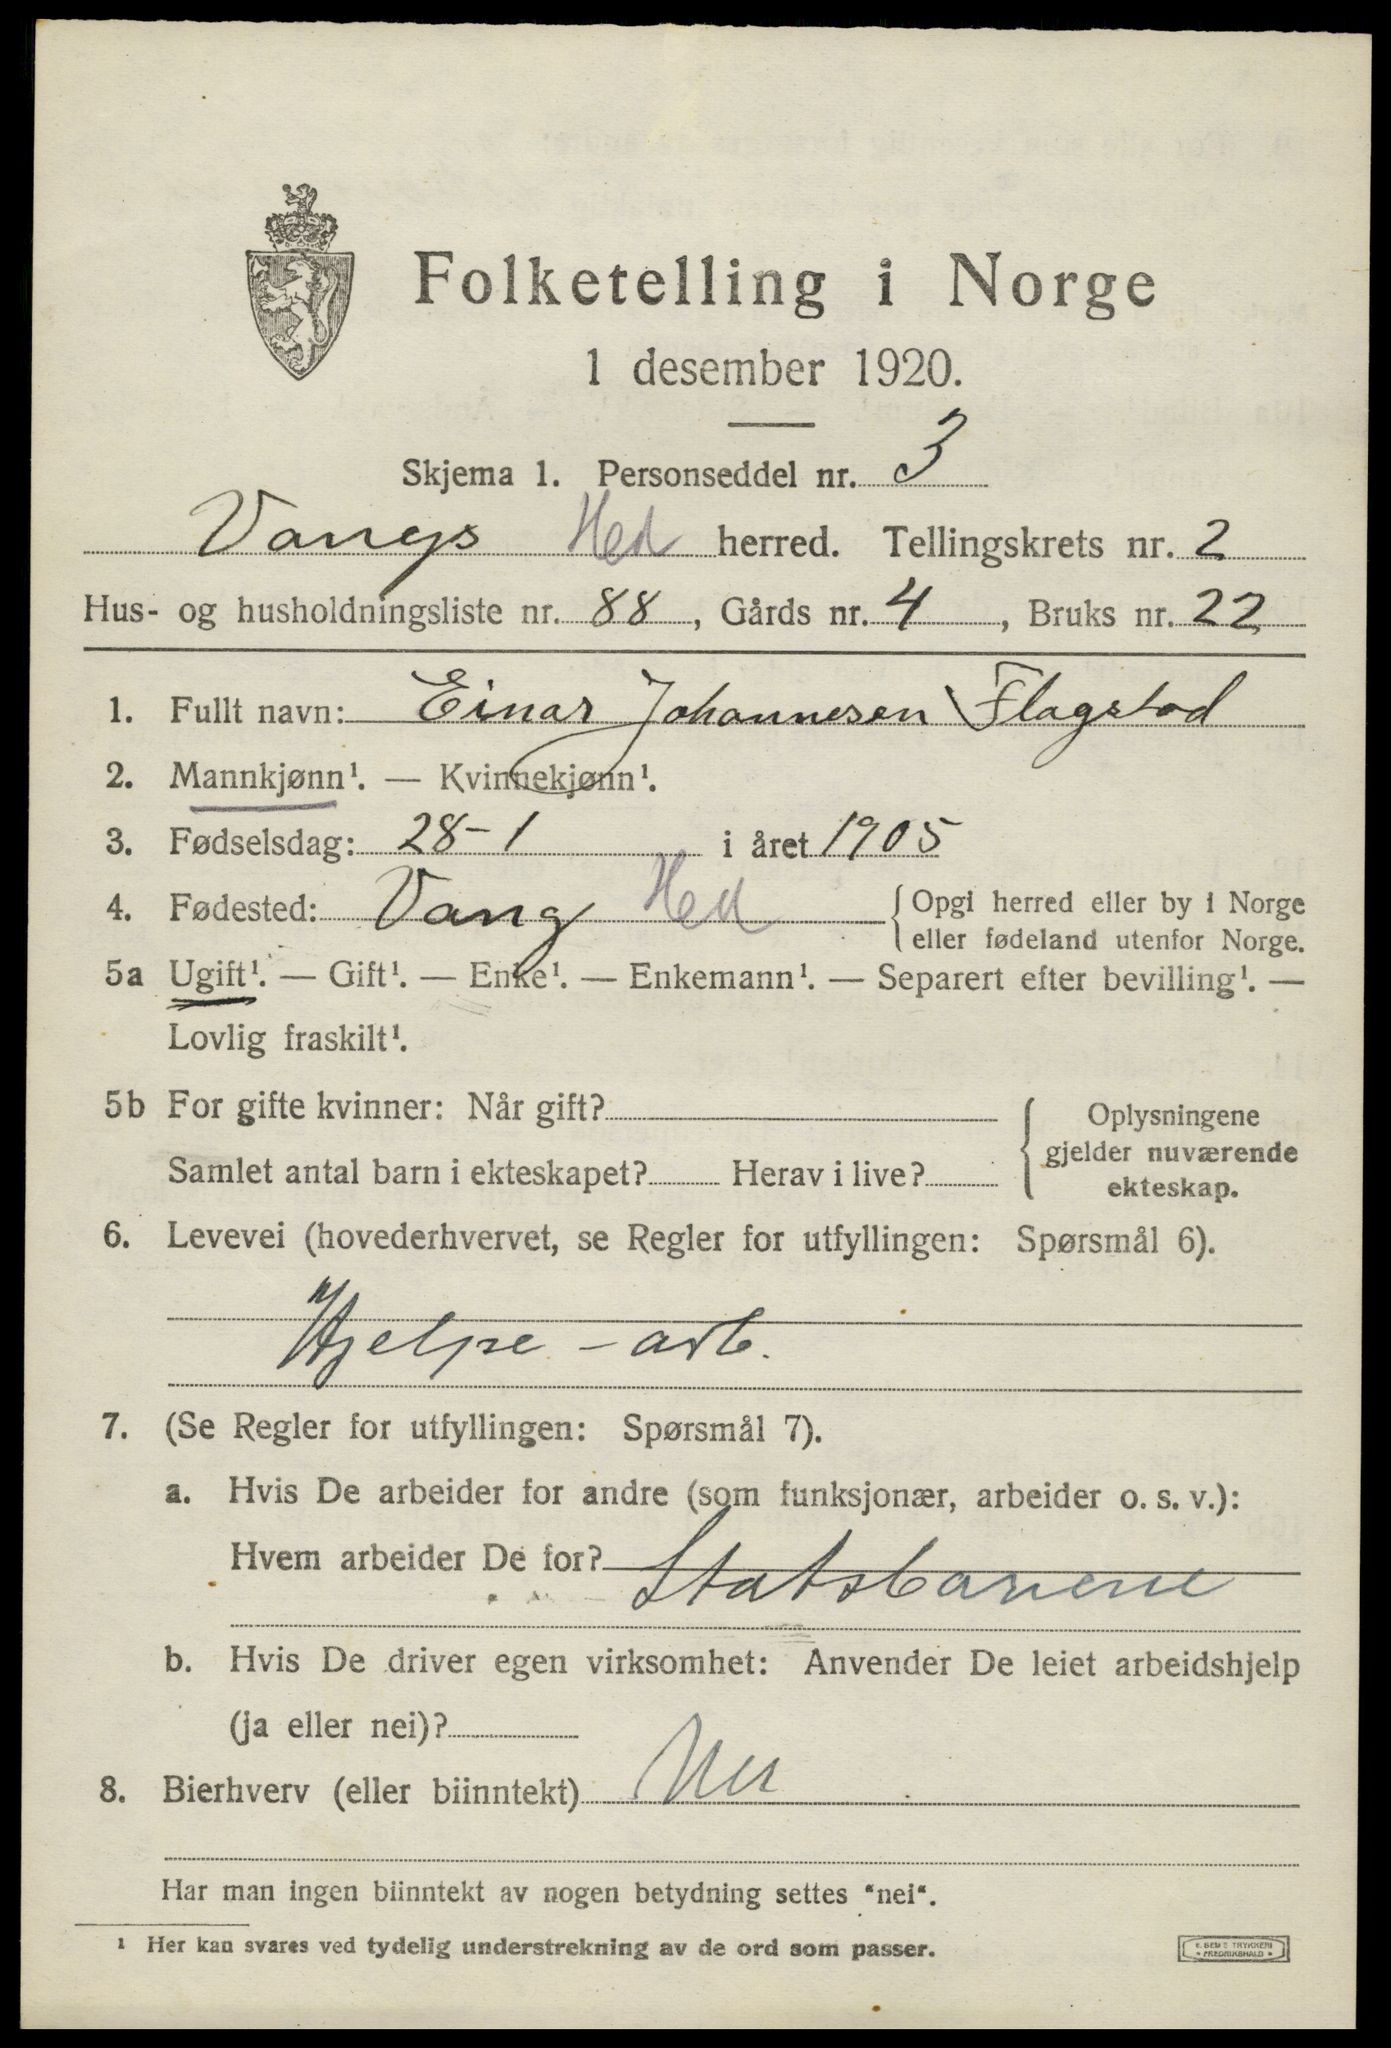 Folketelling i Norge
1 desember 1920.
Skjema 1. Personseddel nr. 3
Vangs Hed herred. Tellingskrets nr. 2
Hus- og husholdningsliste nr. 88, Gårds nr. 4, Bruks nr. 22
1. Fullt navn: Einar Johannesen Flagstad
2. Mannkjønn¹. — Kvinnekjønn¹.
3. Fødselsdag: 28-1 i året 1905
4. Fødested: Vang Hed { Opgi herred eller by i Norge
eller fødeland utenfor Norge.
5a Ugift¹. — Gift¹. — Enke¹. — Enkemann¹. — Separert efter bevilling¹. —
Lovlig fraskilt¹.
5b For gifte kvinner: Når gift? { Oplysningene
gjelder nuværende
Samlet antal barn i ekteskapet? Herav i live?
ekteskap.
6. Levevei (hovederhvervet, se Regler for utfyllingen: Spørsmål 6).
Hjelpe-arb.
7. (Se Regler for utfyllingen: Spørsmål 7).
a. Hvis De arbeider for andre (som funksjonær, arbeider o. s. v.):
Hvem arbeider De for? Statsbanene
b. Hvis De driver egen virksomhet: Anvender De leiet arbeidshjelp
(ja eller nei)?
8. Bierhverv (eller biinntekt) Nei
Har man ingen biinntekt av nogen betydning settes "nei".
¹ Her kan svares ved tydelig understrekning av de ord som passer.
E. SEM'S TRYKKERI
• FREDRIKSHALD •